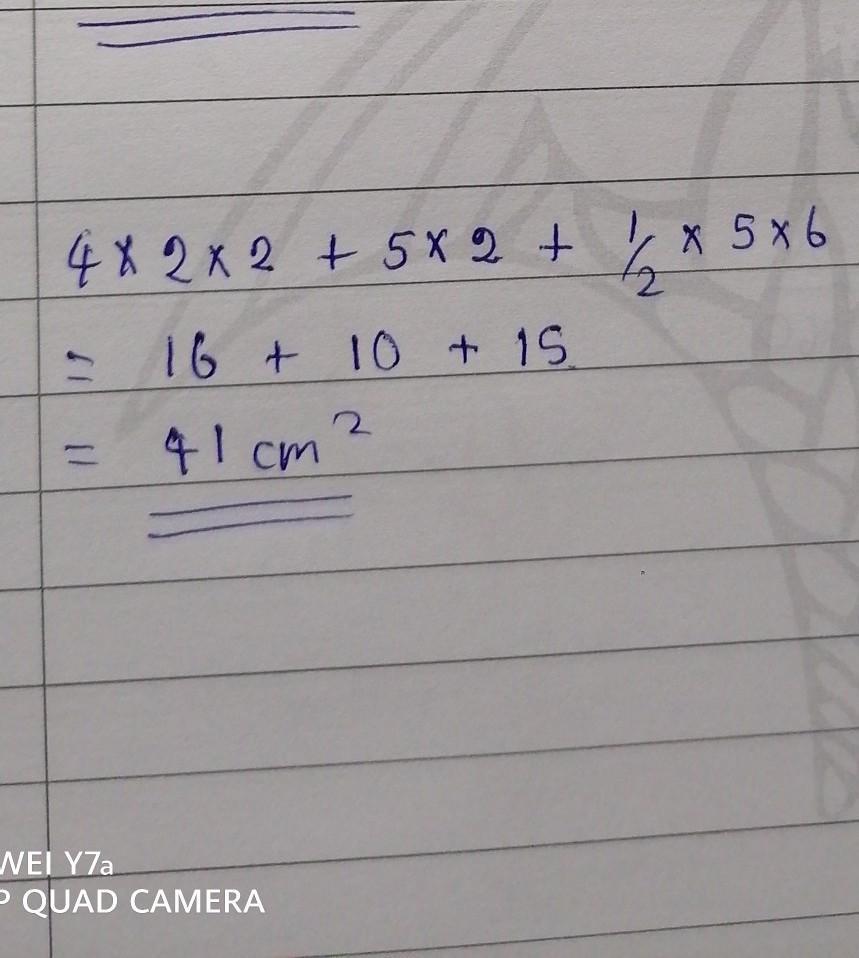 4 × 2 × 2 + 5 × 2 + 1/2 × 5 × 6
= 16 + 10 + 15
= 41 cm²
WEI Y7a
P QUAD CAMERA